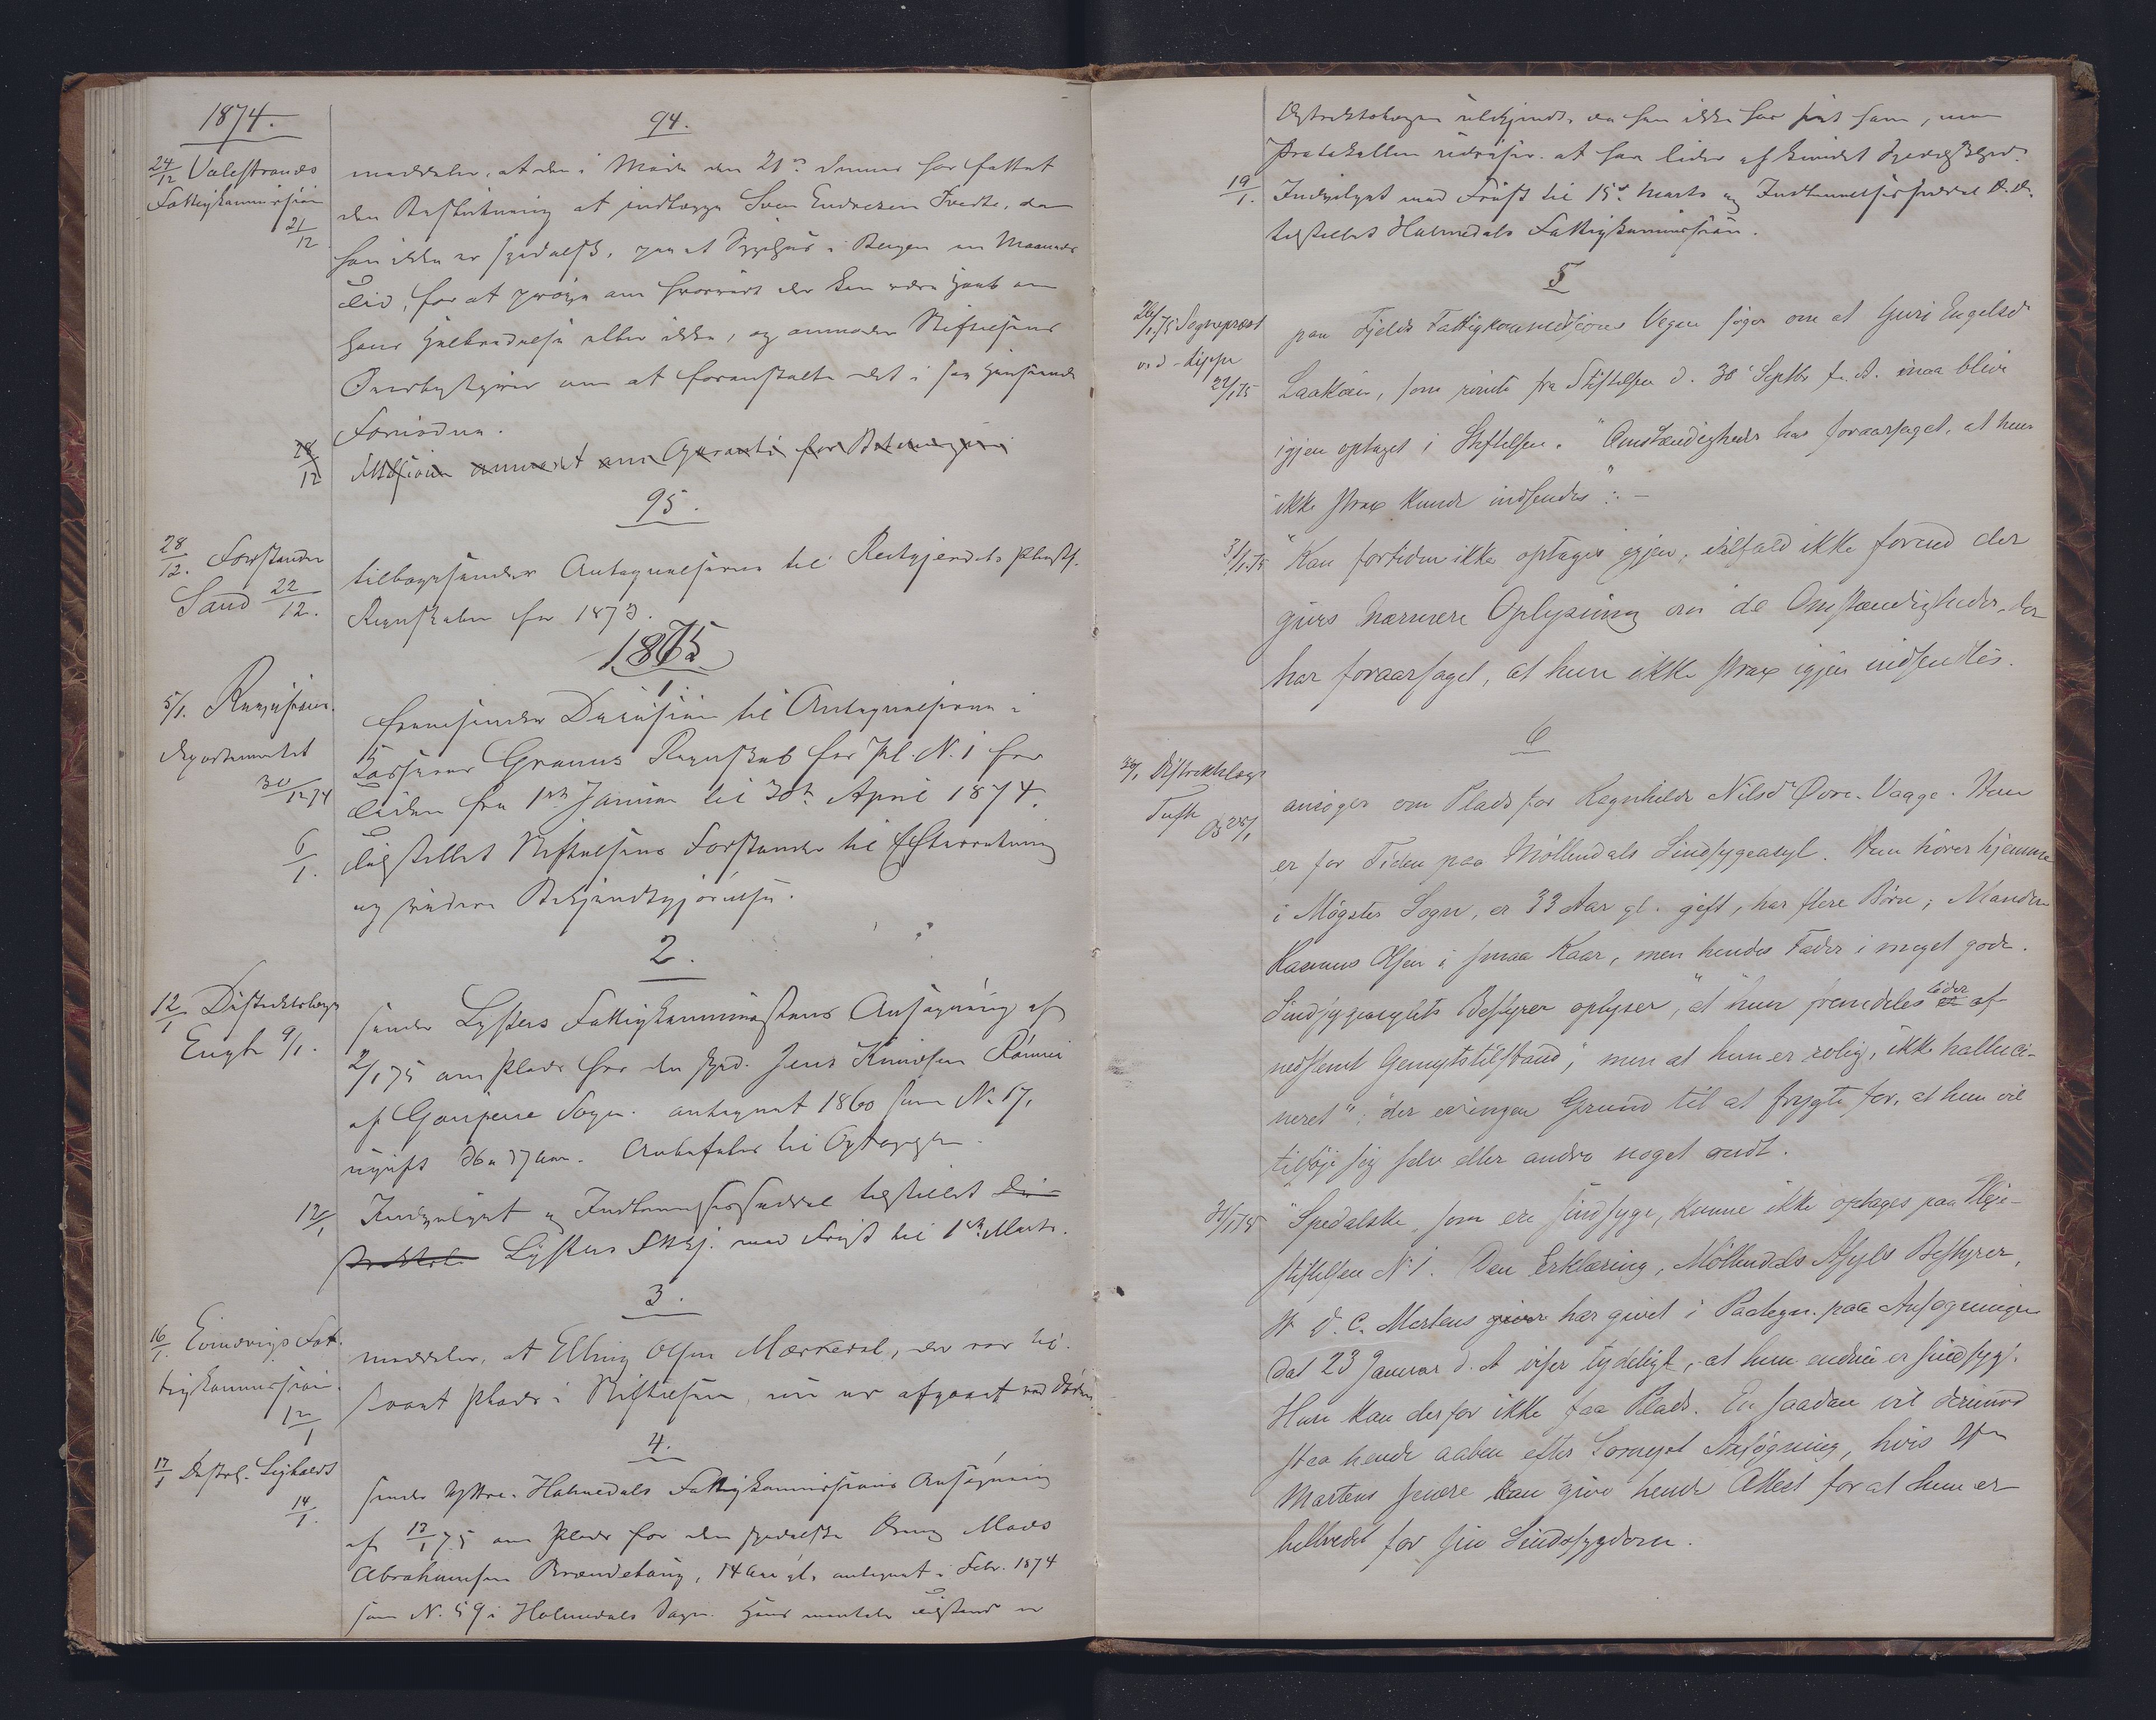 1874.
94.
24/12 Valestrands
Fattigkommission
21/12
meddeler, at den i Møde den 21de dennes har fattet
den Beslutning at indlægge Sven Endresen Tvedte, da
han ikke er spedalsk, paa et Sygehus i Bergen en Maaneds
Tid, for at prøve om hvorvidt der kan være Haab om
hans Helbredelse eller ikke, og anmoder Stiftelsens
Overbestyrer om at foranstalte det i saa Henseende
Fornødne.
28/12 anmodet om Garanti for Betalingen
95.
28/12. Forstander
Sand 22/12.
tilbagesender Antegnelserne til Reitgjerdets Pleiestf.
Regnskaber for 1873.
1875
1.
5/1. Revisions-
departementet
30/12 74
fremsender Decision til Antegnelserne i
Kasserer Grans Regnskab for Pl. N. 1 for
Tiden fra 1ste Januar til 30te April 1874.
6/1. Tilstillet Stiftelsens Forstander til Efterretning
og videre Bekjendtgjørelse.
2.
12/1 Distriktslæge
Engh 9/1.
sender Lysters Fattigkommissions Ansøgning af
2/1 75 om Plads for den sped. Jens Knudsen Rønnei
af Gaupne Sogn. antegnet 1860 som N. 17,
ugift 36 a 37 Aar. Anbefales til Optagelse.
12/1 Indvilget og Indlemmelsesseddel tilstillet Di-
striktsl. Lysters Fttgk. med Frist til 1ste Marts.
3.
16/1. Evindvigs Fat-
tigkommission.
12/1
meddeler, at Elling Olsen Mærkesal, der var til-
staaet Plads i Stiftelsen, nu er afgaaet ved Døden.
4.
17/1 Distrl.
14/1.
sender Yttre-Holmedals Fattigkommissions Ansøgning
af 12/1 75 om Plads for den spedalske Dreng Mads
Abrahamsen Brændehaug, 14 Aar gl. antegnet i Febr. 1874
som N. 59 i Holmedals Sogn. Hans mentale Tilstand er
Distriktslægen ubekjendt, da han ikke har seet ham, men
Protokollen udviser, at han lider af knudet Spedalskhed.
19/1. Indvilget med Frist til 15de Marts og Indlemmelsesseddel D. D.
tilstillet Holmedals Fattigkommission.
5
26/1.75 Sognepræst
22/1 75
paa Fjelds Fattigkommissions Vegne søger om at Guri Engelsdr
som rømte fra Stiftelsen d. 30 Septbr f. A. maa blive
igjen optaget i Stiftelsen. "Omstændigheder har foraarsaget, at hun
ikke strax kunde indsendes". –
31/1.75 "Kan fortiden ikke optages igjen, ialfald ikke forend der
gives nærmere Oplysning om de Omstændigheder, der
har foraarsaget, at hun ikke strax igjen indsendtes.
6
30/1 Distriktslæge
Tuff
28/1
ansøger om Plads for Ragnhilde Nilsdr Øvre-Vaage. Hun
er for Tiden paa Møllendals Sindsygeasyl. Hun hører hjemme
i Møgster Sogn, er 33 Aar gl. gift, har flere Børn; Manden
Rasmus Olsen i smaa Kaar, men hendes Fader i meget gode.
Sindsygeasylets Bestyrer oplyser, "at hun fremdeles er lider af
nedstemt Gemytstilstand, men at hun er rolig, ikke halluci-
neret"; "der er ingen Grund til at frygte for, at hun vil
tilføje sig selv eller andre noget ondt.
31/1 75 "Spedalske, som ere sindsyge, kunne ikke optages paa Pleje-
stiftelsen N. 1. Den Erklæring, Møllendals Asyls Bestyrer,
Hr D. C. Martens giver har givet i Paategn. paa Ansøgningen
dat 23 Januar d. A viser tydeligt, at hun endnu er sindsyg.
Hun kan derfor ikke faa Plads. En saadan vil derimod
staa hende aaben efter fornyet Ansøgning, hvis Hr
Martens senere kan give hende Attest for at hun er
helbredet for sin Sindssygdom.